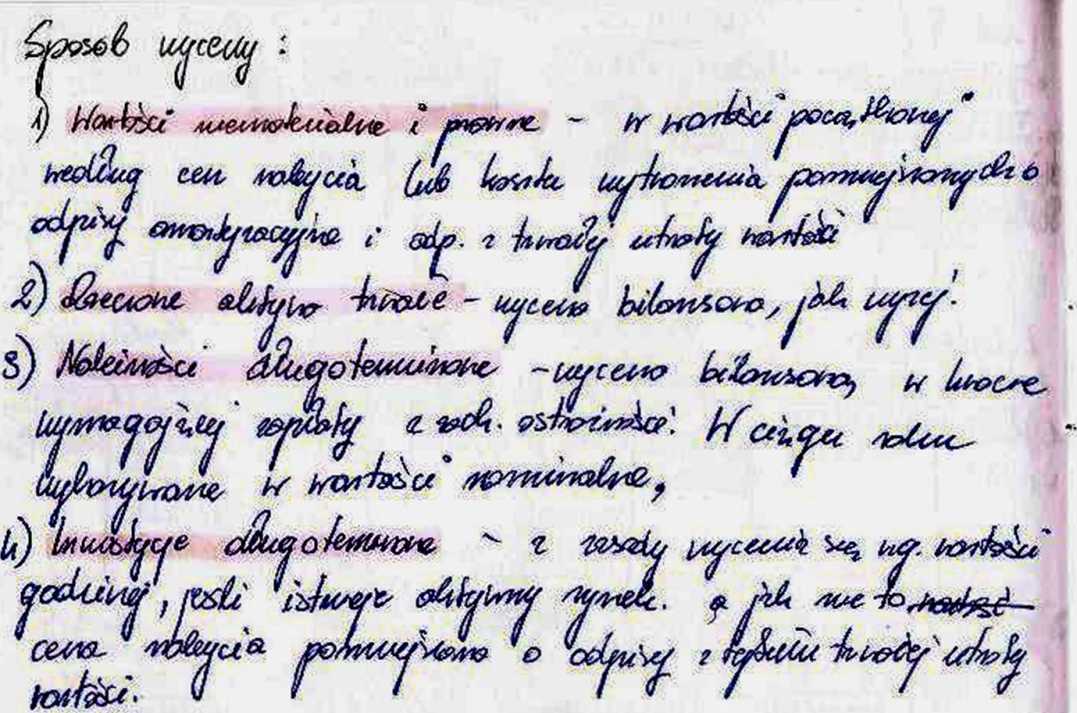 Sposób wyceny :
1) Wartości niematerialne i prawne - w wartości początkowej
według cen nabycia lub koszta wytworzenia pomniejszonych o
odpisy amortyzacyjne i odp. z trwałej utraty wartości
2) Rzeczowe aktywa trwałe - wycena bilansowa, jak wyżej.
3) Należności długoterminowe - wycena bilansowa, w kwocie
wymagającej zapłaty z zach. ostrożności. W ciągu roku
wykazywane w wartości nominalne,
4) Inwestycje długoterminowe - z zasady wycenia się wg. wartości
godziwej, jeśli istnieje aktywny rynek. a jak nie to wartość
cena nabycia pomniejszona o odpisy z tytułu trwałej utraty
wartości.